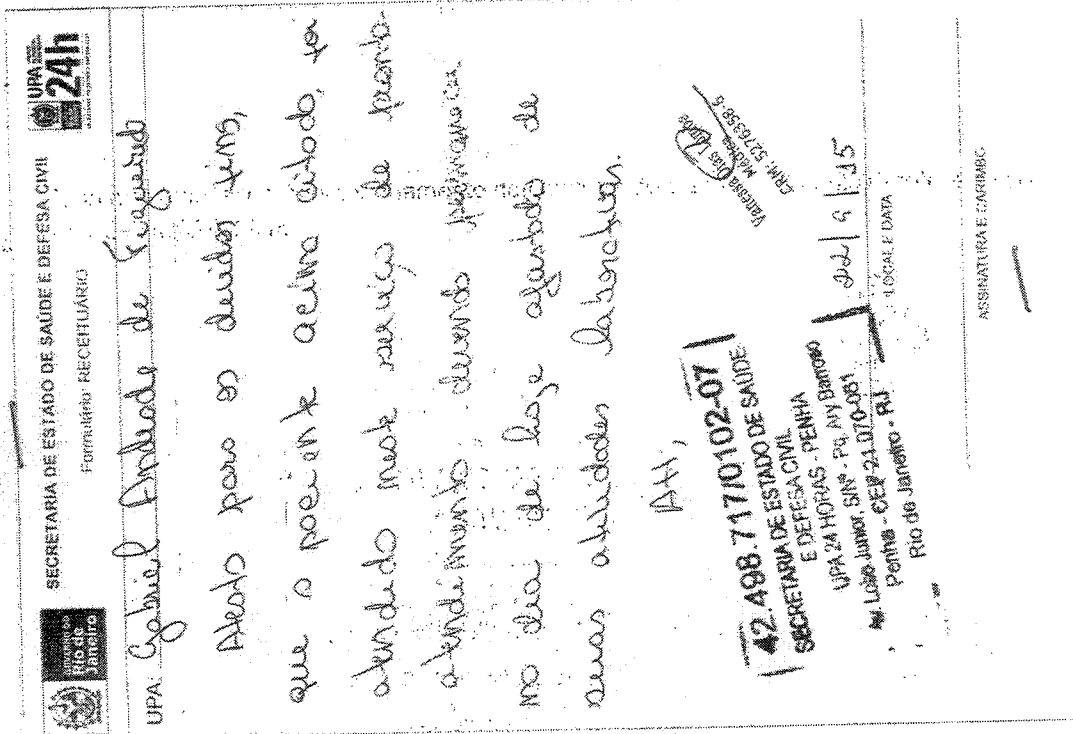 GOVERNO DO
Rio de
Janeiro
SECRETARIA DE ESTADO DE SAÚDE E DEFESA CIVIL
Formulário: RECEITUÁRIO
UPA
24h
UPA: Gabriel Andrade de Figueiredo
Atesto para os devidos fins,
que o paciente acima citado, foi
atendido neste serviço de pronto-
atendimento, devendo permanecer
no dia de hoje afastado de
suas atividades laborativas.
Att,
Vanessa Dias
CRM: 5276358-6
42.498.717/0102-07
SECRETARIA DE ESTADO DE SAÚDE
E DEFESA CIVIL
UPA 24 HORAS - PENHA
Av. Lobo Junior, S/Nº - Pq. Ary Barroso
Penha - CEP 21.070-061
Rio de Janeiro - RJ
22/9/15
LOCAL E DATA
ASSINATURA E CARIMBO